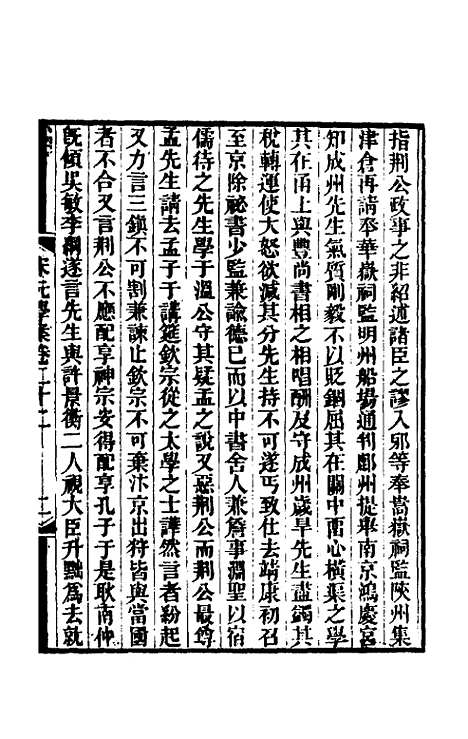 指荆公政事之非紹述諸臣之謬入邪等奉嵩嶽祠監陝州集
津倉再請奉華嶽祠監明州船場通判鄜州提舉南京鴻慶宮
知成州先生氣質剛毅不以貶錮屈其在關中畱心橫渠之學
其在甬上與豐尚書相之相唱酬及守成州歲旱先生盡蠲其
稅轉運使大怒欲減其分先生持不可遂丐致仕去靖康初召
至京除祕書少監兼諭德已而以中書舍人兼詹事淵聖以宿
儒待之先生學于溫公守其疑孟之說又惡荆公而荆公最尊
孟先生請去孟子于講筵欽宗從之太學之士譁然言者紛起
又力言三鎮不可割兼諫止欽宗不可棄汴京出狩皆與當國
者不合又言荆公不應配享神宗安得配享孔子于是耿南仲
旣傾吳敏李綱遂言先生與許景衡二人視大臣升黜爲去就
宋元學案卷二十二